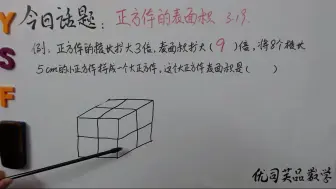 今日话题：正方体的表面积 3.17.
例：正方体的棱长扩大3倍，表面积扩大（9）倍，将8个棱长
5cm的小正方体拼成一个大正方体，这个大正方体表面积是（ ）
Y
S
F
优司英品数学